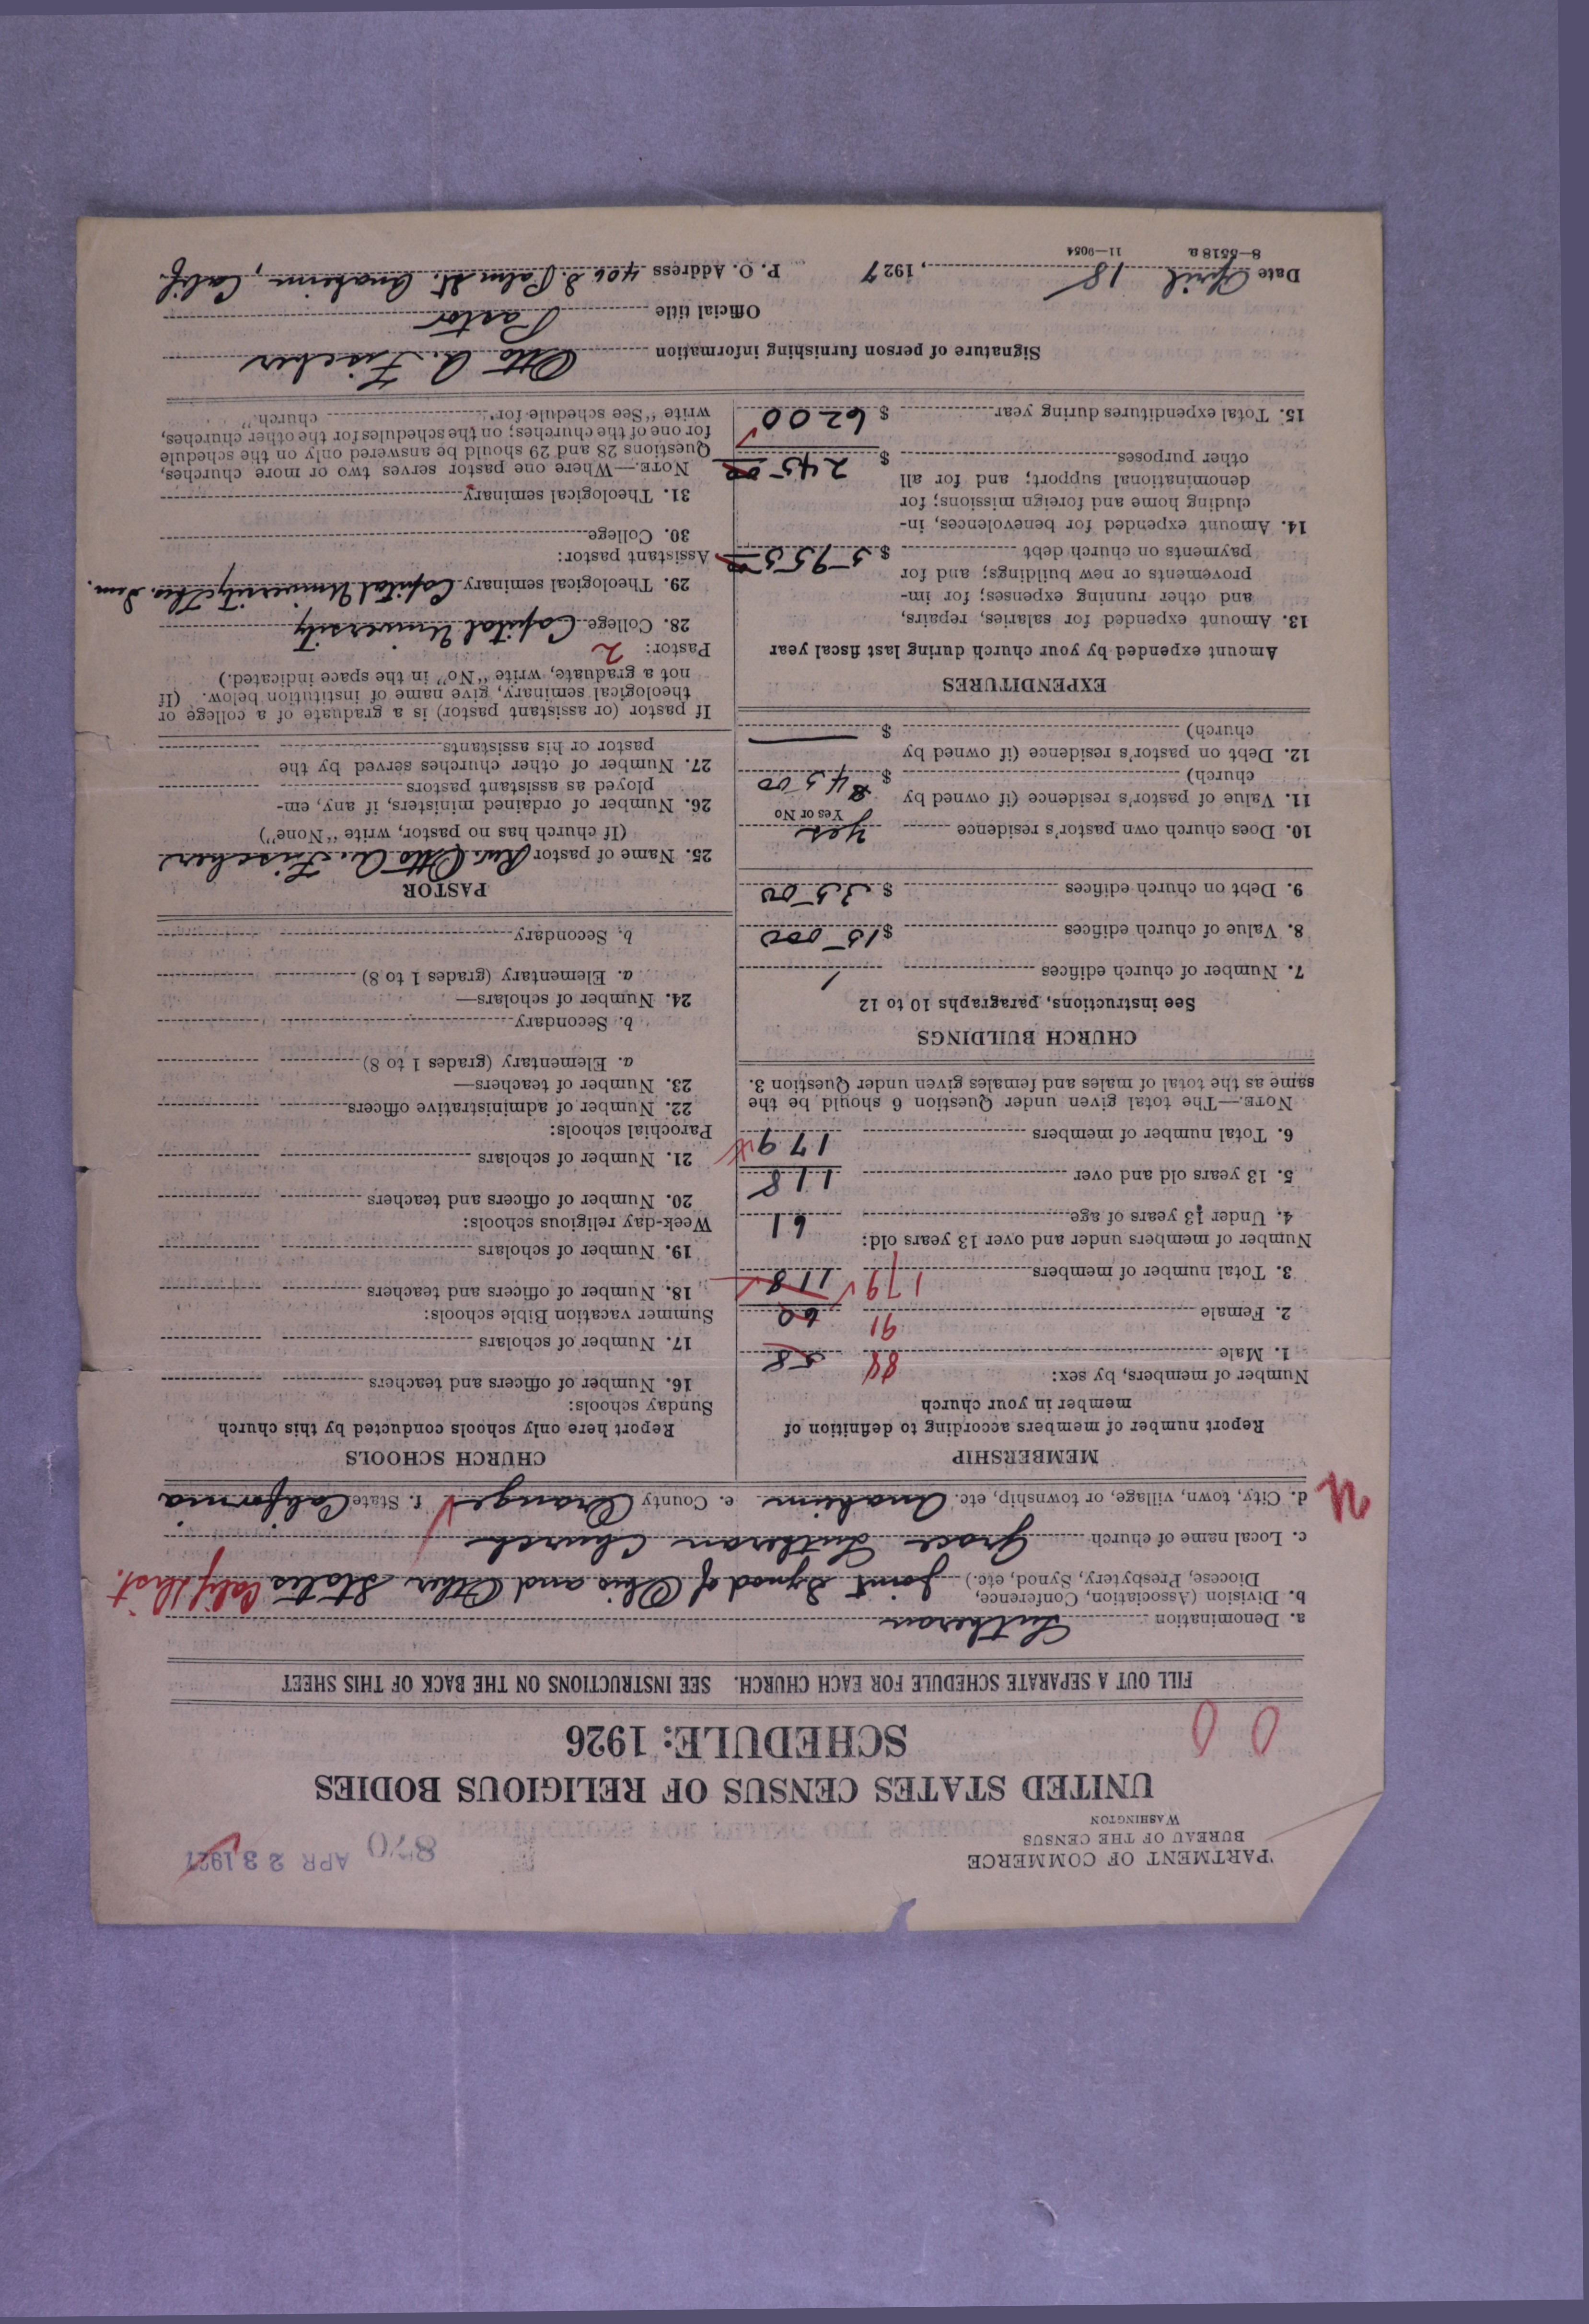 PARTMENT OF COMMERCE
BUREAU OF THE CENSUS
WASHINGTON
870 APR 23 1927
UNITED STATES CENSUS OF RELIGIOUS BODIES
SCHEDULE: 1926
0 0
FILL OUT A SEPARATE SCHEDULE FOR EACH CHURCH. SEE INSTRUCTIONS ON THE BACK OF THIS SHEET
a. Denomination Lutheran
b. Division (Association, Conference,
Diocese, Presbytery, Synod, etc.) Joint Synod of Ohio and Other States Calif Dist.
c. Local name of church Grace Lutheran Church
d. City, town, village, or township, etc. Anaheim e. County Orange f. State California
MEMBERSHIP
Report number of members according to definition of
member in your church
Number of members, by sex:
1. Male 88 58
2. Female 91 60
3. Total number of members 179 118
Number of members under and over 13 years old:
4. Under 13 years of age 61
5. 13 years old and over 118
6. Total number of members 179
NOTE.—The total given under Question 6 should be the
same as the total of males and females given under Question 3.
CHURCH BUILDINGS
See instructions, paragraphs 10 to 12
7. Number of church edifices 1
8. Value of church edifices $15000
9. Debt on church edifices $3500
10. Does church own pastor's residence Yes
Yes or No
11. Value of pastor's residence (if owned by
church) $4500
12. Debt on pastor's residence (if owned by
church) $ —
EXPENDITURES
Amount expended by your church during last fiscal year
13. Amount expended for salaries, repairs,
and other running expenses; for im-
provements or new buildings; and for
payments on church debt $5955 00
14. Amount expended for benevolences, in-
cluding home and foreign missions; for
denominational support; and for all
other purposes $245 00
15. Total expenditures during year $6200
CHURCH SCHOOLS
Report here only schools conducted by this church
Sunday schools:
16. Number of officers and teachers
17. Number of scholars
Summer vacation Bible schools:
18. Number of officers and teachers
19. Number of scholars
Week-day religious schools:
20. Number of officers and teachers
21. Number of scholars
Parochial schools:
22. Number of administrative officers
23. Number of teachers—
a. Elementary (grades 1 to 8)
b. Secondary
24. Number of scholars—
a. Elementary (grades 1 to 8)
b. Secondary
PASTOR
25. Name of pastor Rev. Otto A. Fischer
(If church has no pastor, write "None")
26. Number of ordained ministers, if any, em-
ployed as assistant pastors
27. Number of other churches served by the
pastor or his assistants
If pastor (or assistant pastor) is a graduate of a college or
theological seminary, give name of institution below. (If
not a graduate, write "No" in the space indicated.)
Pastor: 2
28. College Capital University
29. Theological seminary Capital University Theo. Sem.
Assistant pastor:
30. College
31. Theological seminary
NOTE.—Where one pastor serves two or more churches,
Questions 28 and 29 should be answered only on the schedule
for one of the churches; on the schedules for the other churches,
write "See schedule for church."
Signature of person furnishing information Otto A. Fischer
Official title Pastor
Date April 18, 1927 P. O. Address 406 S. Palm St. Anaheim, Calif.
8—5518 a 11—9054